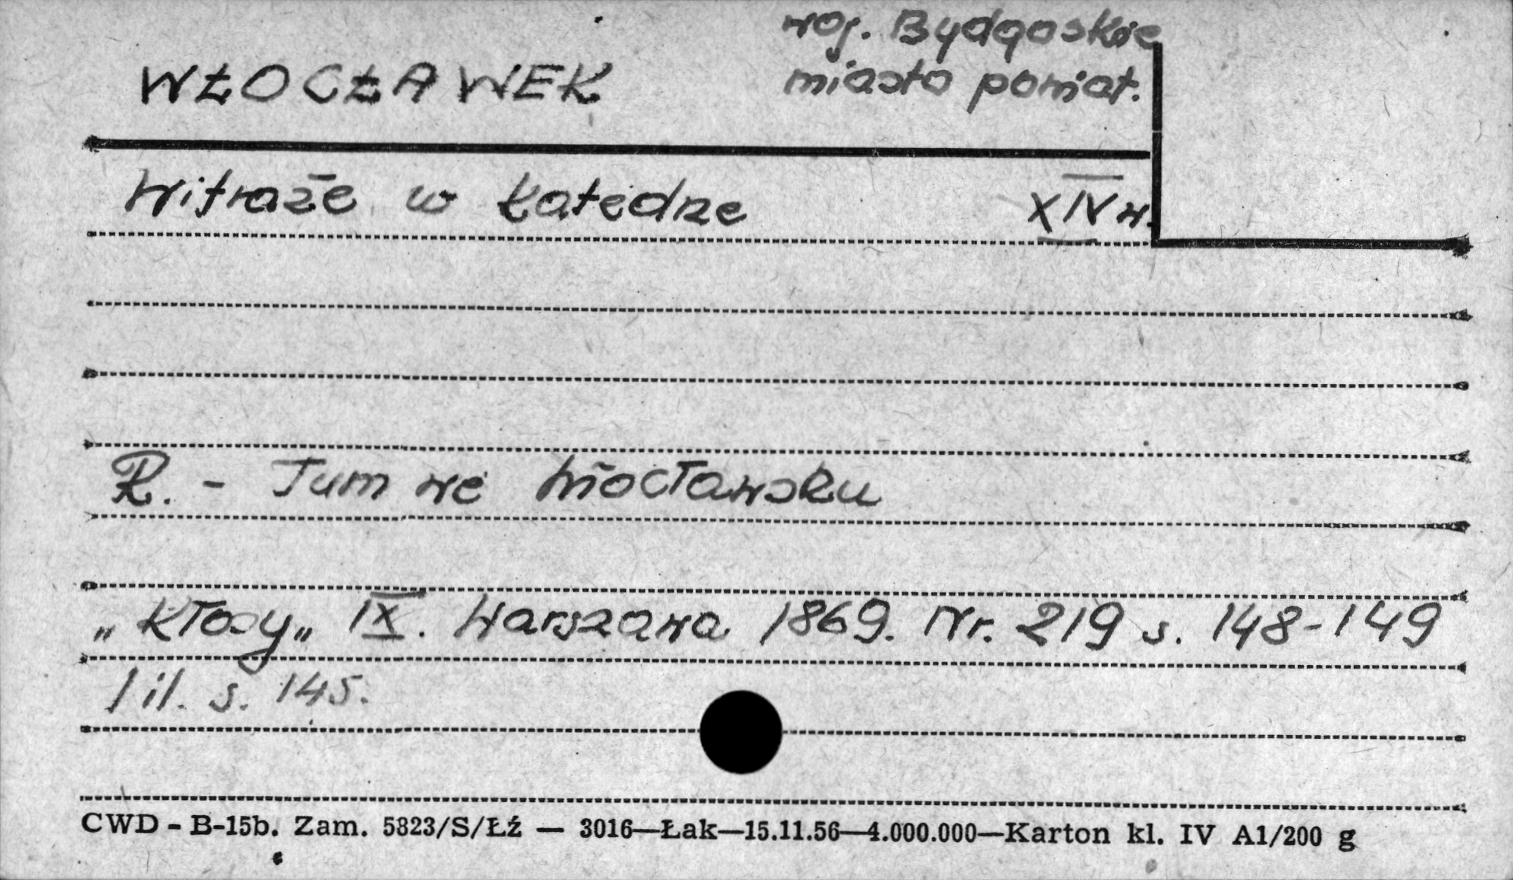 WŁOCŁAWEK
woj. Bydgoskie
miasto powiat.
Witraże w katedrze XIV w.
R. - Tum we Włocławsku
„Kłosy„ IX. Warszawa 1869. Nr. 219 s. 148-149
/il. s. 145.
CWD - B-15b. Zam. 5823/S/Łź — 3016—Łak—15.11.56—4.000.000—Karton kl. IV A1/200 g